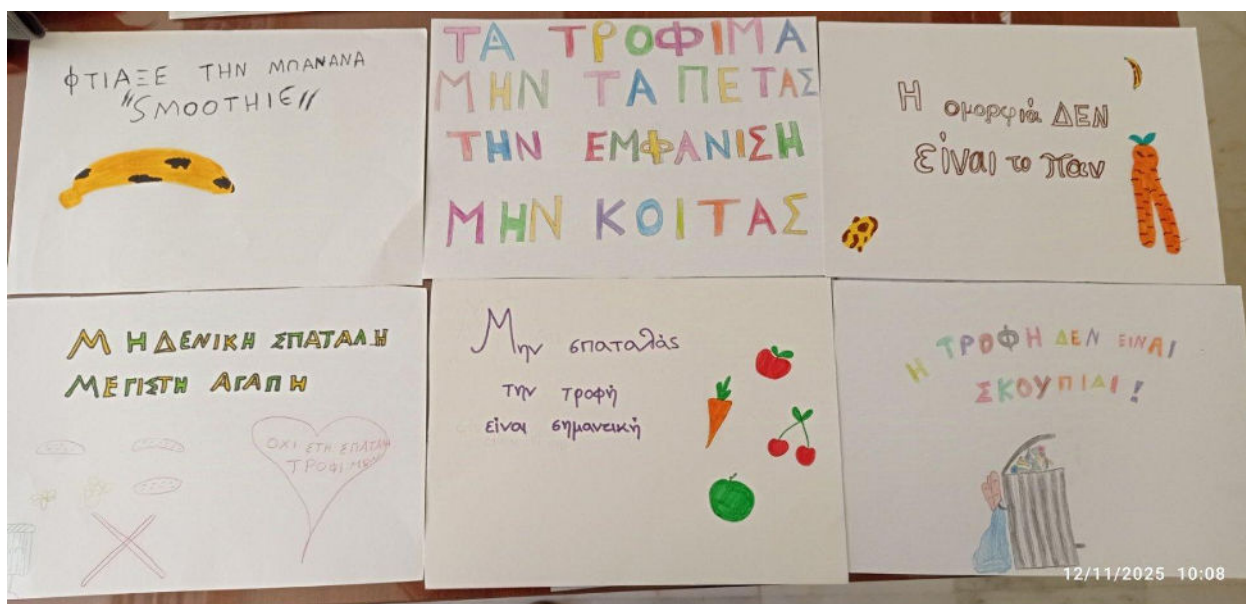 ΦΤΙΑΞΕ ΤΗΝ ΜΠΑΝΑΝΑ
"SMOOTHIE"
ΤΑ ΤΡΟΦΙΜΑ
ΜΗΝ ΤΑ ΠΕΤΑΣ
ΤΗΝ ΕΜΦΑΝΙΣΗ
ΜΗΝ ΚΟΙΤΑΣ
Η ομορφιά ΔΕΝ
είναι το παν
ΜΗΔΕΝΙΚΗ ΣΠΑΤΑΛΗ
ΜΕΓΙΣΤΗ ΑΓΑΠΗ
ΟΧΙ ΣΤΗ ΣΠΑΤΑΛΗ
ΤΡΟΦΙΜΩΝ
Μην σπαταλάς
την τροφή
είναι σημαντική
Η ΤΡΟΦΗ ΔΕΝ ΕΙΝΑΙ
ΣΚΟΥΠΙΔΙ!
12/11/2025 10:08